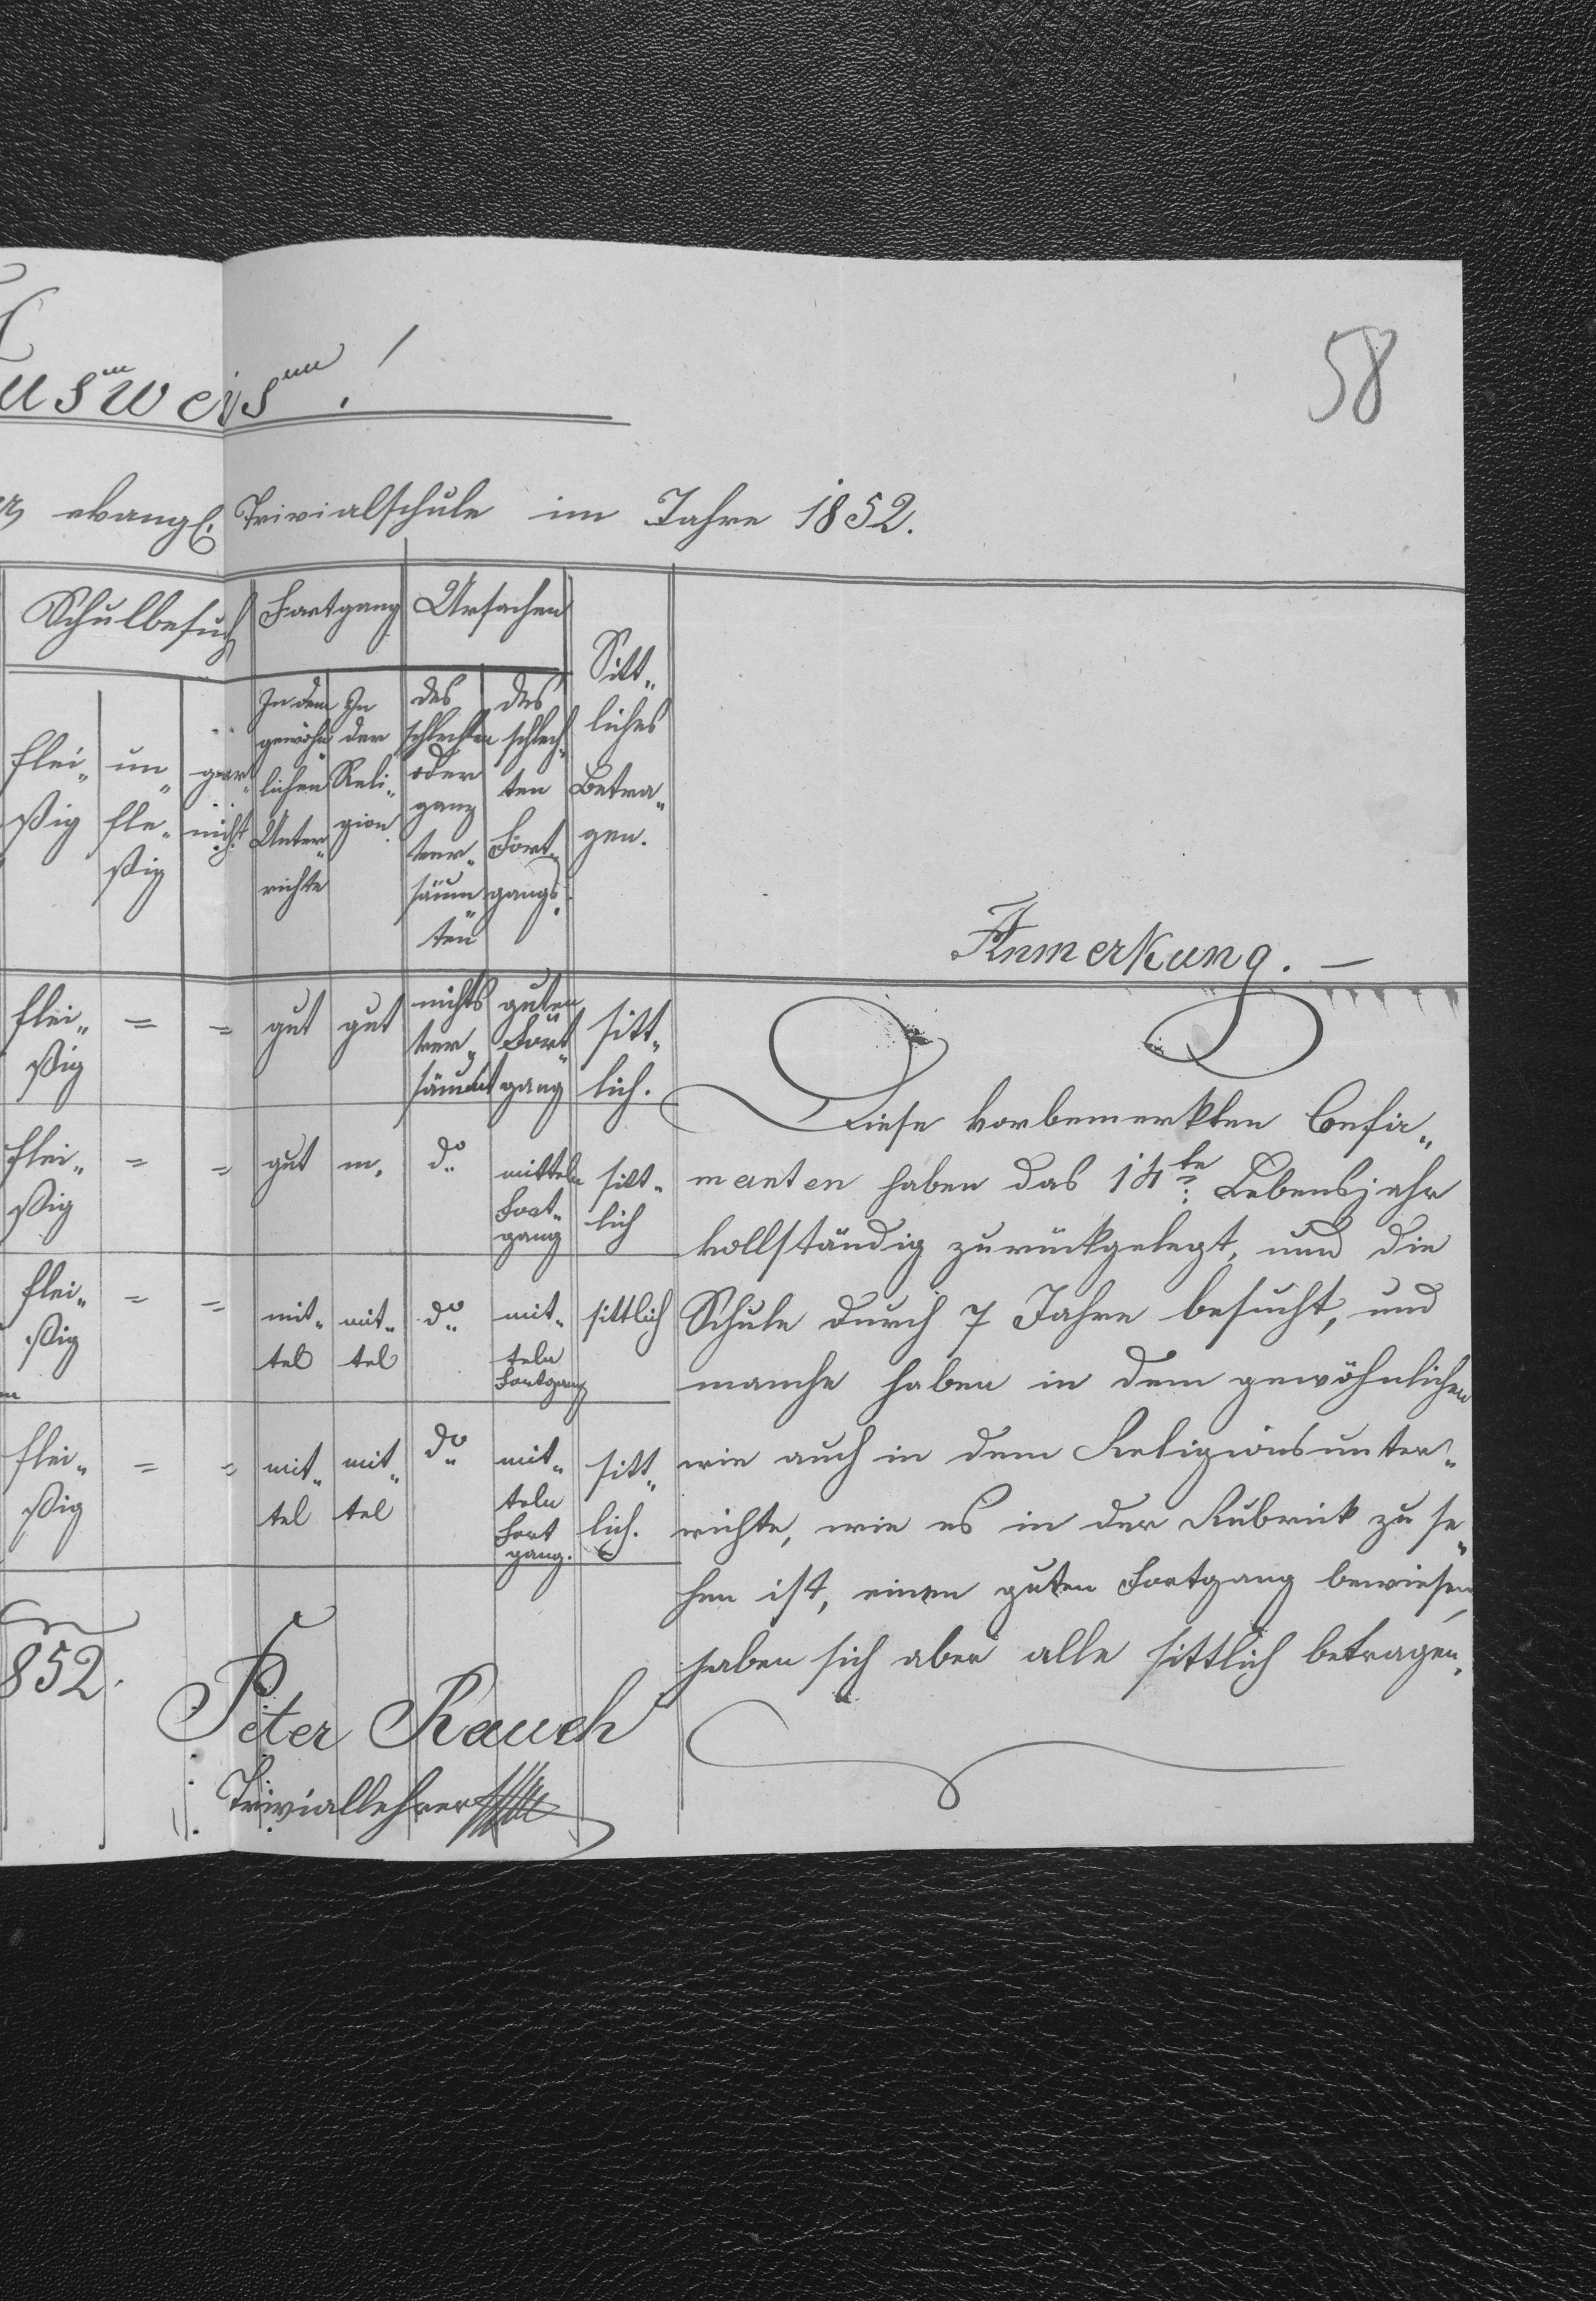 58
usweis!
evangl. Trivialschule im Jahre 1852.
Schulbesuch Fortgang Ursachen Sitt„
liches
Betra„
gen.
flei„
ßig
un„
flei„
ßig
gar„
nicht
In dem
gewöhn„
lichen
Unter„
richte
In
der
Reli„
gion.
des
schlechten
oder
ganz
ver„
säum„
ten
des
schlech„
ten
Fort„
gangs.
Anmerkung. —
flei„
ßig
= = gut gut
nichts
ver„
säumt
guten
Fort„
gang
sitt„
lich.
flei„
ßig
= = gut m. do
mitteln
Fort„
gang
sitt„
lich
flei„
ßig
= =
mit„
tel
mit„
tel
do
mit„
teln
Fortgang
sittlich
flei„
ßig
= =
mit„
tel
mit„
tel
do
mit„
teln
Fort
gang.
sitt„
lich.
Diese vorbemerkten Confir„
manten haben das 14te Lebensjahr
vollständig zurückgelegt, und die
Schule durch 7 Jahre besucht, und
manche haben in dem gewöhnlichen
wie auch in dem Religionsunter„
richte, wie es in der Rubrick zu se„
hen ist, einen guten Fortgang bewiesen,
haben sich aber alle sittlich betragen.
852.
Peter Rauch
Triviallehrer